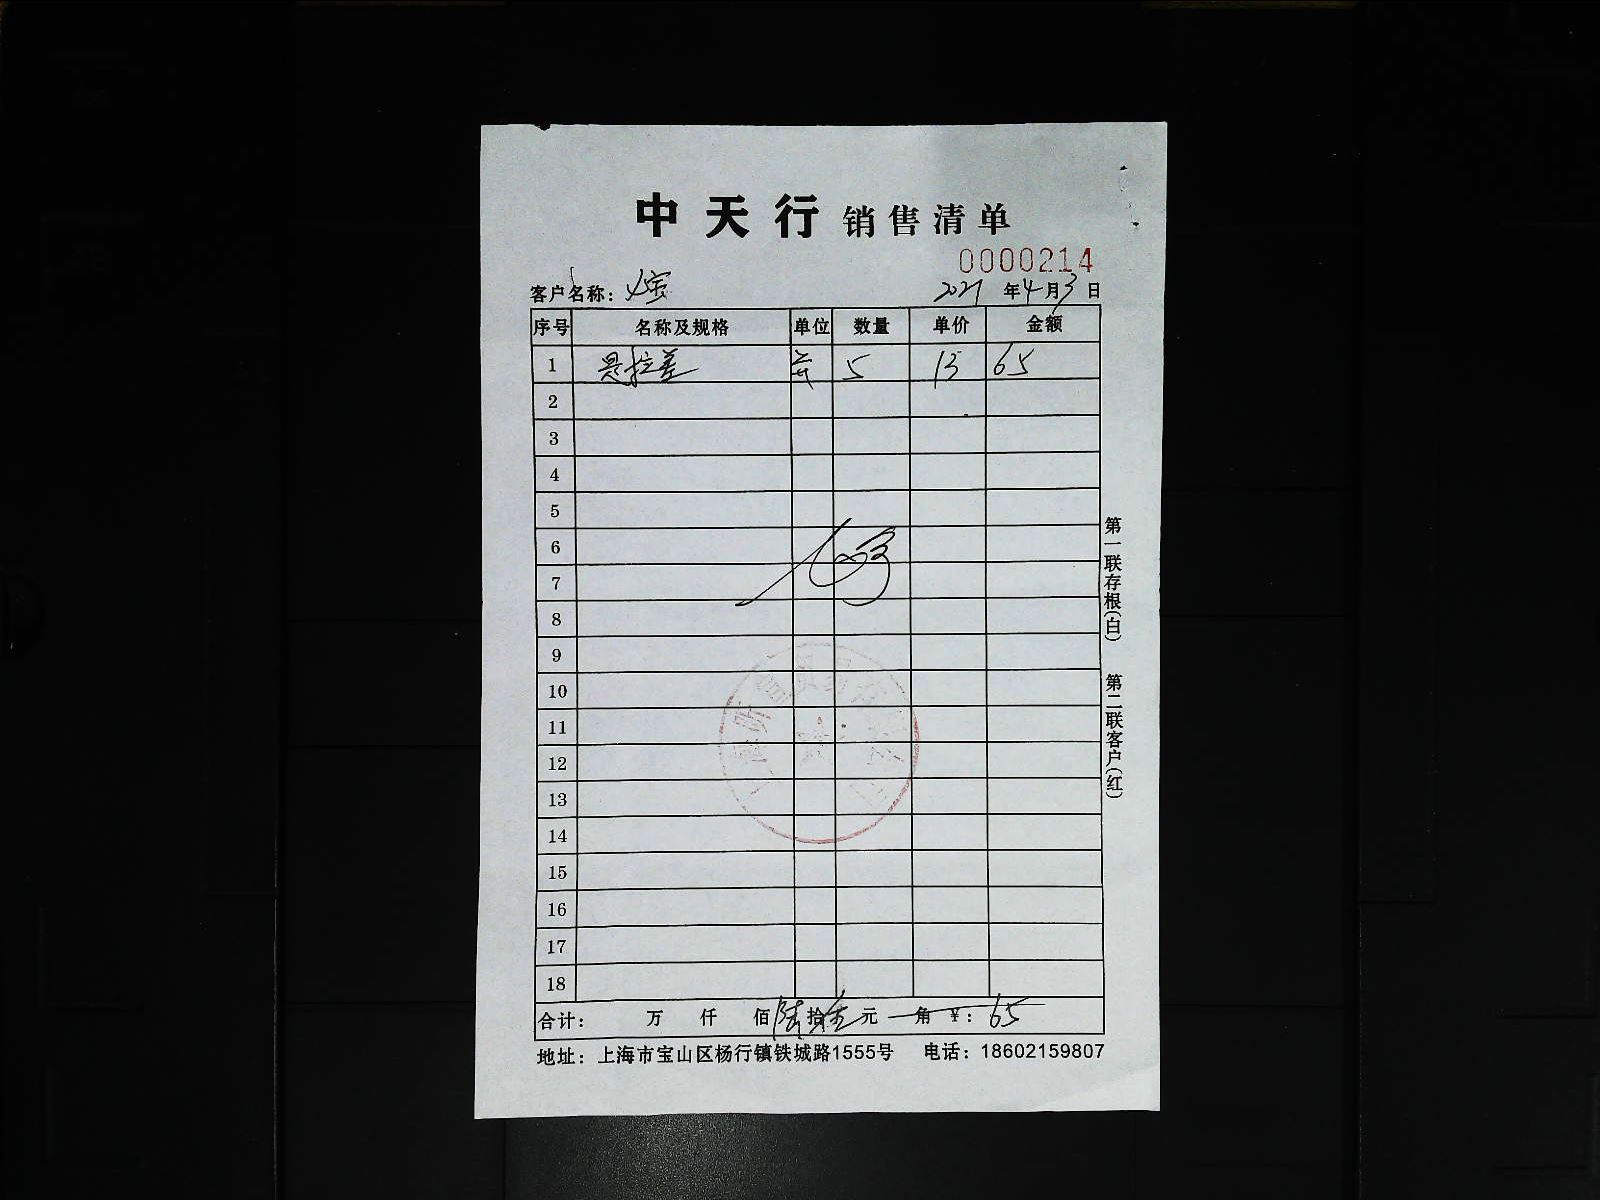 中天行 销售清单
0000214
客户名称：
2021 年 4 月 3 日
序号 名称及规格 单位 数量 单价 金额
1 是拉差 5 13 65
2
3
4
5
6
7
8
9
10
11
12
13
14
15
16
17
18
合计： 万 仟 佰 陆 拾 伍 元 角 ¥： 65
地址：上海市宝山区杨行镇铁城路1555号 电话：18602159807
第一联存根(白) 第二联客户(红)